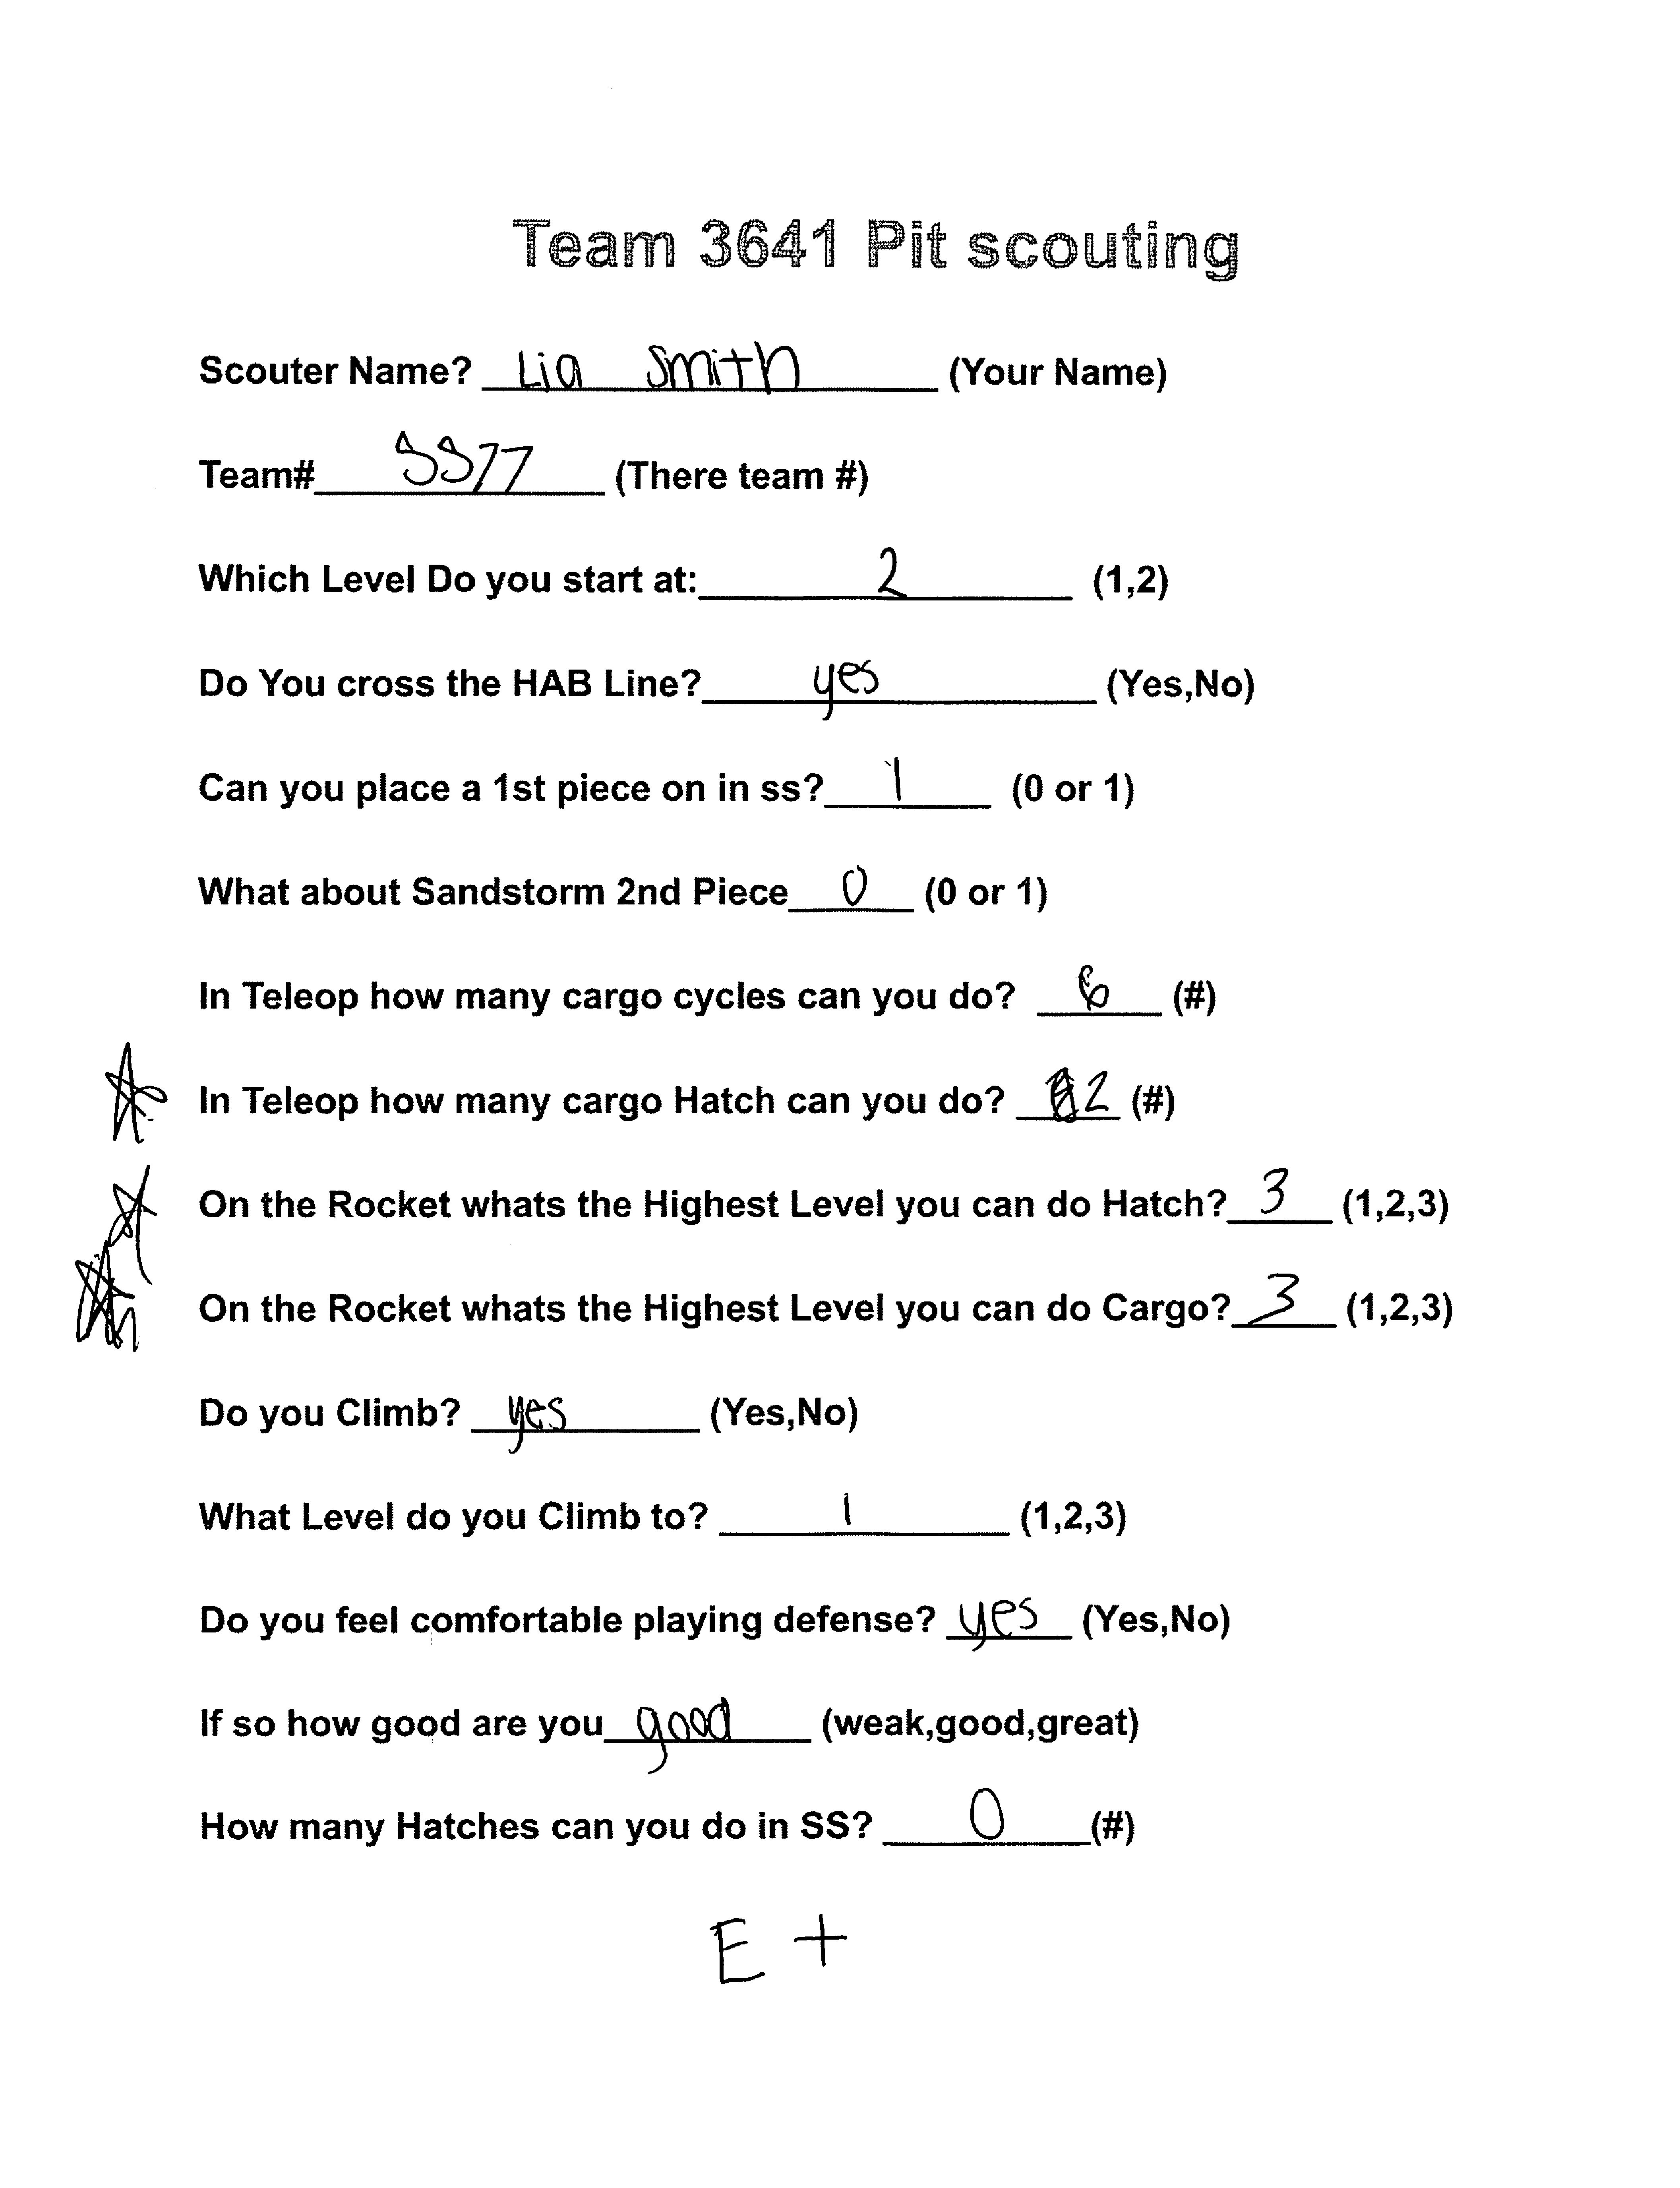 Team 3641 Pit scouting
Scouter Name? Lia Smith (Your Name)
Team# 5577 (There team #)
Which Level Do you start at: 2 (1,2)
Do You cross the HAB Line? yes (Yes,No)
Can you place a 1st piece on in ss? 1 (0 or 1)
What about Sandstorm 2nd Piece 0 (0 or 1)
In Teleop how many cargo cycles can you do? 6 (#)
In Teleop how many cargo Hatch can you do? 2 (#)
On the Rocket whats the Highest Level you can do Hatch? 3 (1,2,3)
On the Rocket whats the Highest Level you can do Cargo? 3 (1,2,3)
Do you Climb? yes (Yes,No)
What Level do you Climb to? 1 (1,2,3)
Do you feel comfortable playing defense? yes (Yes,No)
If so how good are you good (weak,good,great)
How many Hatches can you do in SS? 0 (#)
E +